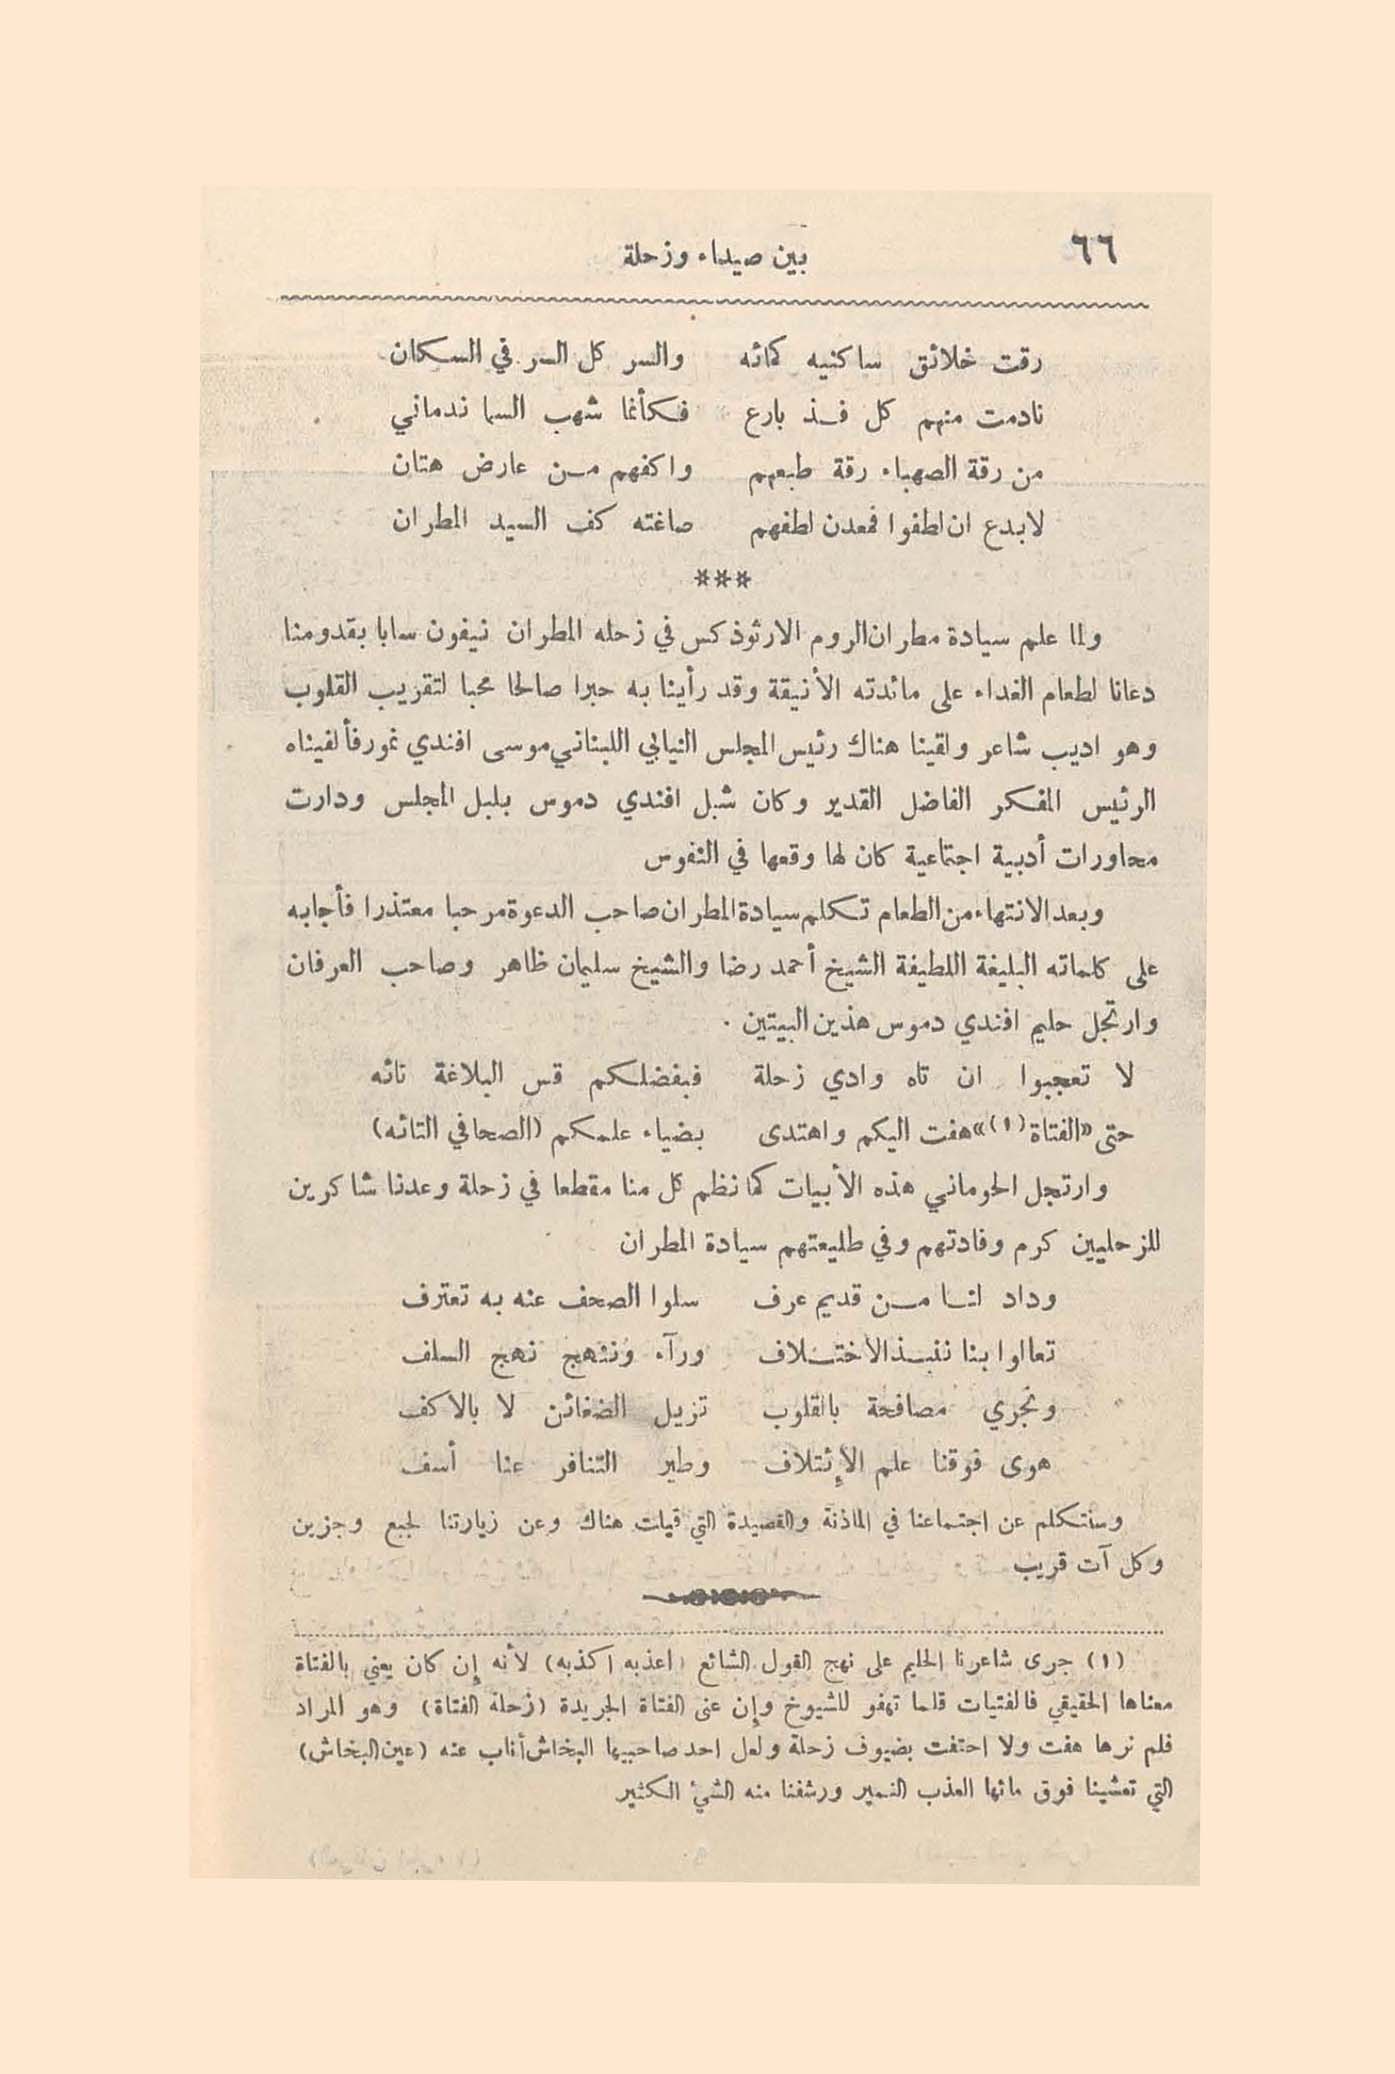 ٦٦
بين صيداء وزحلة
رقت خلائق ساكنيه كمائه والسر كل السر في السكان
نادمت منهم كل فذ بارع فكأنما شهب السما ندماني
من رقة الصهباء رقة طبعهم واكفهم من عارض هتان
لا بدع ان لطفوا فمعدن لطفهم صاغته كف السيد المطران
***
ولما علم سيادة مطران الروم الارثوذكس في زحله المطران نيفون سابا بقدومنا
دعانا لطعام الغداء على مائدته الأنيقة وقد رأينا به حبرا صالحا محبا لتقريب القلوب
وهو اديب شاعر ولقينا هناك رئيس المجلس النيابي اللبناني موسى افندي نمور فألفيناه
الرئيس المفكر الفاضل القدير وكان شبل افندي دموس بلبل المجلس ودارت
محاورات أدبية اجتماعية كان لها وقعها في النفوس
وبعد الانتهاء من الطعام تكلم سيادة المطران صاحب الدعوة مرحبا معتذرا فأجابه
على كلماته البليغة اللطيفة الشيخ أحمد رضا والشيخ سليمان ظاهر وصاحب العرفان
وارتجل حليم افندي دموس هذين البيتين .
لا تعجبوا ان تاه وادي زحلة فبفضلكم قس البلاغة تائه
حتى «الفتاة (١)» هفت اليكم واهتدى بضياء علمكم (الصحافي التائه)
وارتجل الحوماني هذه الأبيات كما نظم كل منا مقطعا في زحلة وعدنا شاكرين
للزحليين كرم وفادتهم وفي طليعتهم سيادة المطران
وداد لنا من قديم عرف سلوا الصحف عنه به تعترف
تعالوا بنا ننبذ الاختلاف ورآء وننهج نهج السلف
ونجري مصافحة بالقلوب تزيل الضغائن لا بالاكف
هوى فوقنا علم الإئتلاف وطير التنافر عنا أسف
وسنتكلم عن اجتماعنا في المأذنة والقصيدة التي قيلت هناك وعن زيارتنا لجبع وجزين
وكل آت قريب
(١) جرى شاعرنا الحليم على نهج القول الشائع (اعذبه اكذبه) لأنه إن كان يعني بالفتاة
معناها الحقيقي فالفتيات قلما تهفو للشيوخ وإن عنى الفتاة الجريدة (زحلة الفتاة) وهو المراد
فلم نرها هفت ولا احتفت بضيوف زحلة ولعل احد صاحبيها البخاش أناب عنه (عين البخاش)
التي تعشينا فوق مائها العذب النمير ورشفنا منه الشئ الكثير